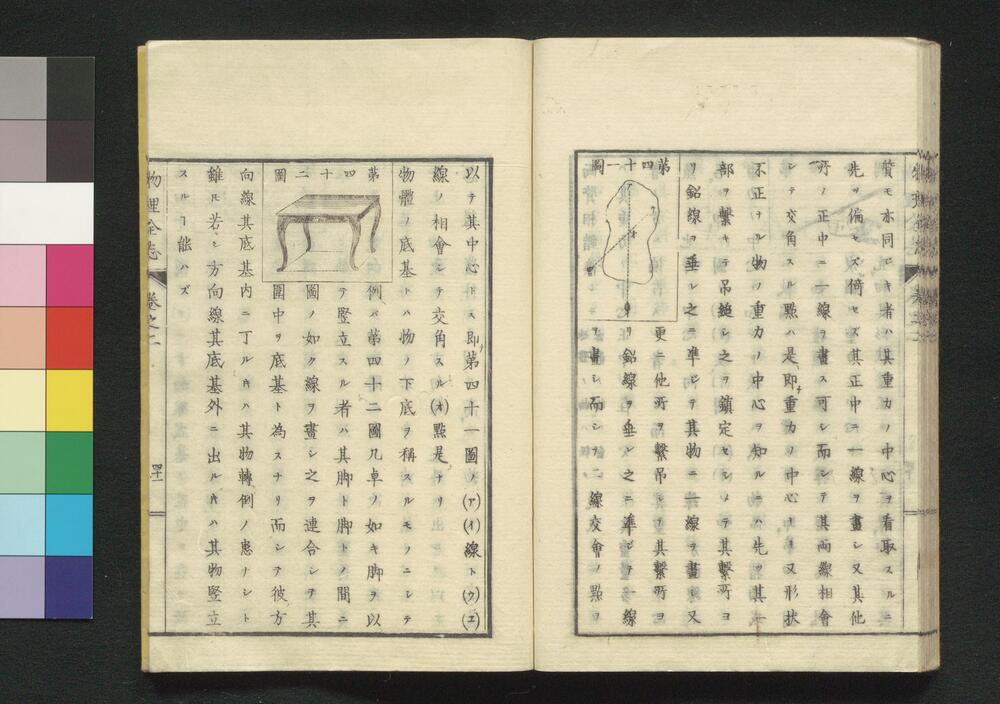 質モ亦同シキ者ハ其重力ノ中心ヲ看取スルニ
先ツ偏セス倚セス其正中ニ一線ヲ畫シ又其他
所ノ正中ニ一線ヲ畫ス可シ而シテ其両線相會
シテ交角スル點ハ是即重力ノ中心ナリ又形状
不正ナル物ノ重力ノ中心ヲ知ルニハ先ツ其一
部ヲ繋キテ吊縋シ之ヲ鎮定セシメテ其繋所ヨ
リ鉛線ヲ垂レ之ニ準シテ其物ニ一線ヲ畫シ又
更ニ他所ヲ繋吊シテ其繋所ヨ
リ鉛線ヲ垂レ之ニ準シテ一線
ヲ畫シ而シテ二線交會ノ點ヲ
第四十一圖
以テ其中心トス即第四十一圖ノ(ア)(イ)線ト(ウ)(エ)
線ノ相會シテ交角スル(オ)點是ナリ
物體ノ底基トハ物ノ下底ヲ稱スルモノニシテ
例ハ第四十二圖几卓ノ如キ脚ヲ以
テ竪立スル者ハ其脚ト脚トノ間ニ
圖ノ如ク線ヲ畫シ之ヲ連合シテ其
圍中ヲ底基ト為スナリ而シテ彼方
第四十二圖
向線其底基内ニ丁ルトキハ其物轉倒ノ患ナシト
雖トモ若シ方向線其底基外ニ出ルトキハ其物竪立
スルコト能ハス
物理全志
卷之二
四十二